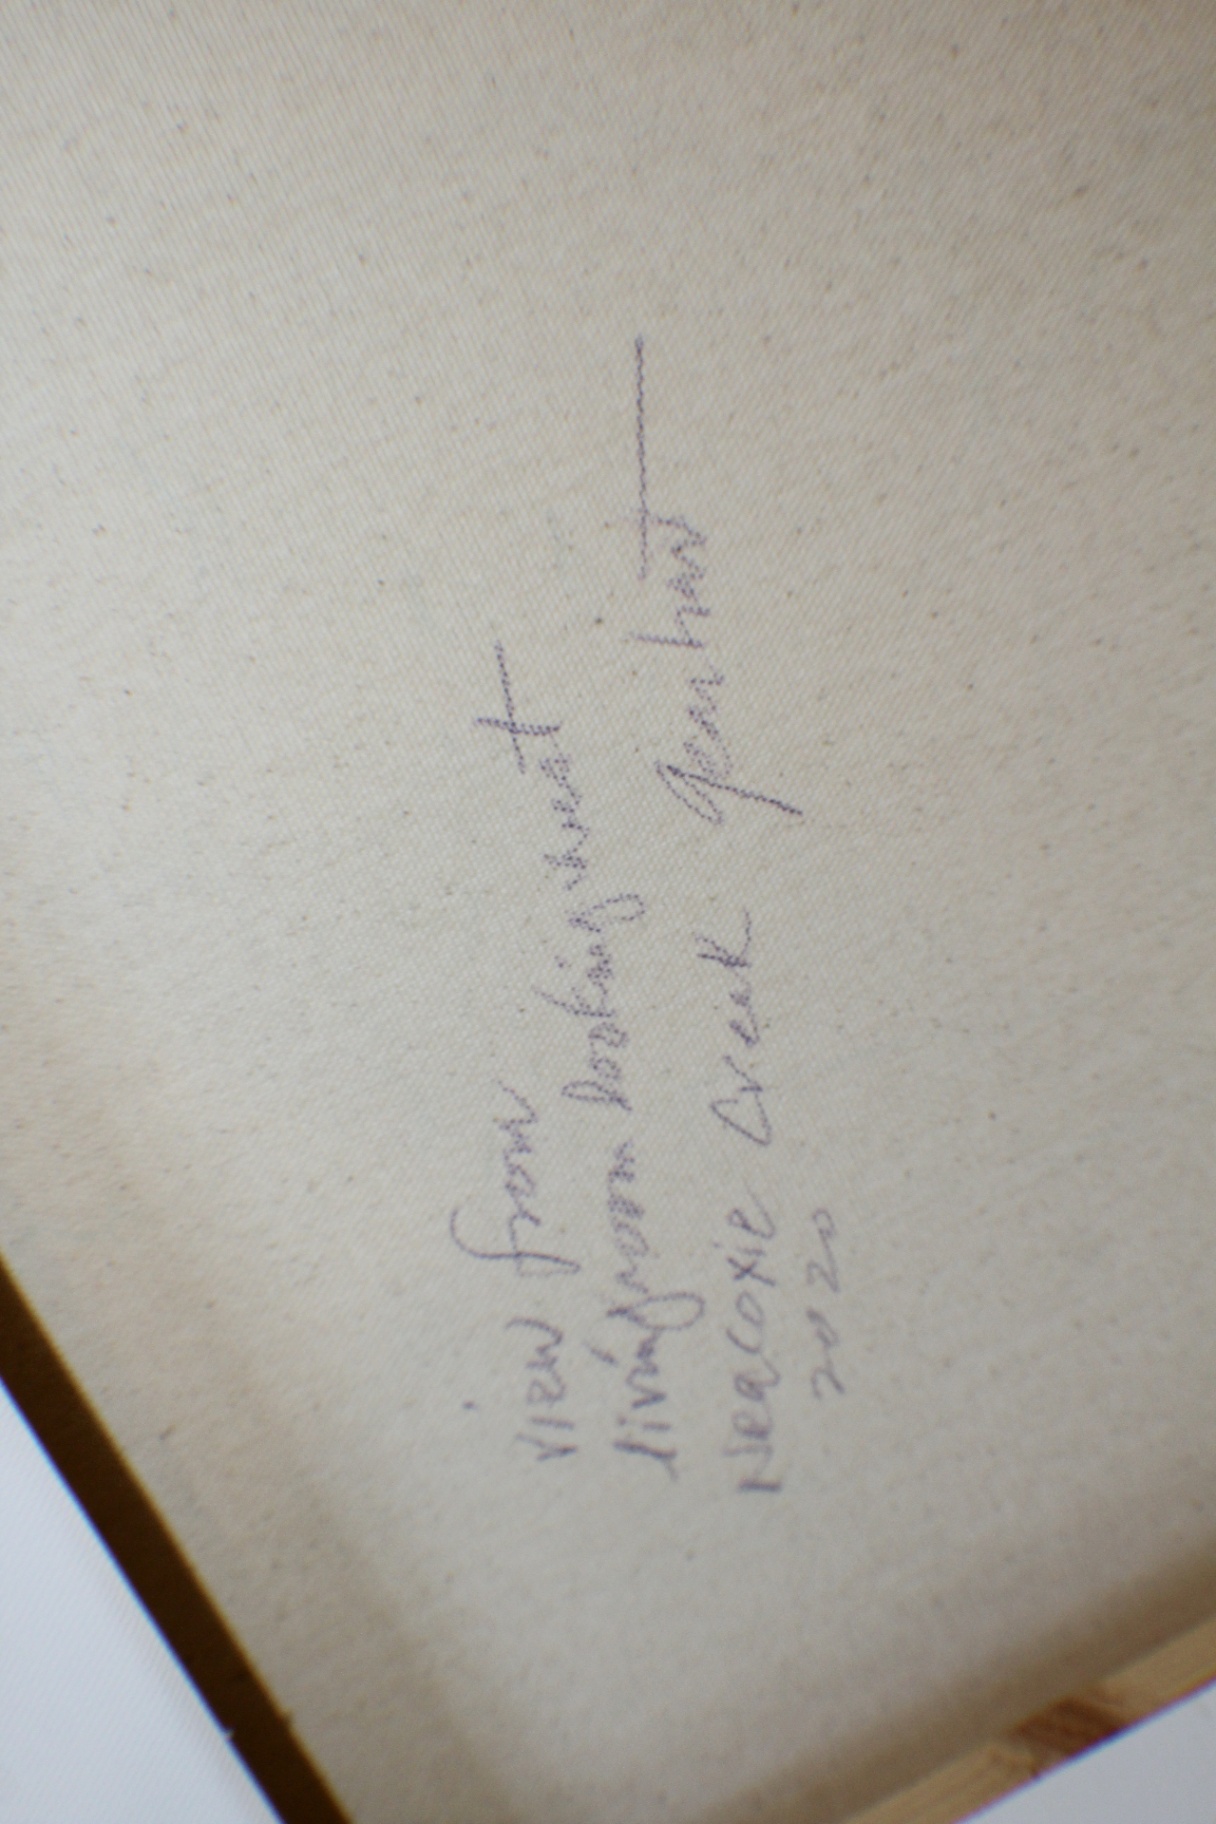 view from
living room looking west
Neacoxie Creek Gearhart
2020